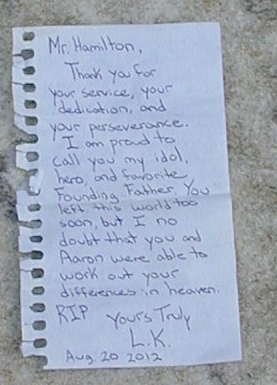 Mr. Hamilton,
Thank you for
your service, your
dedication, and
your perseverance.
I am proud to
call you my idol,
hero, and favorite
Founding Father. You
left this world too
soon, but I no
doubt that you and
Aaron were able to
work out your
differences in heaven.
RIP Yours Truly
L.K.
Aug 20 2012